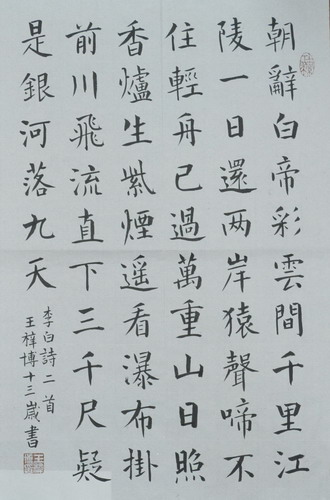 朝辭白帝彩雲間千里江
陵一日還两岸猿聲啼不
住輕舟已過萬重山日照
香爐生紫煙遥看瀑布掛
前川飛流直下三千尺疑
是銀河落九天
李白詩二首
王梓博十三歲書